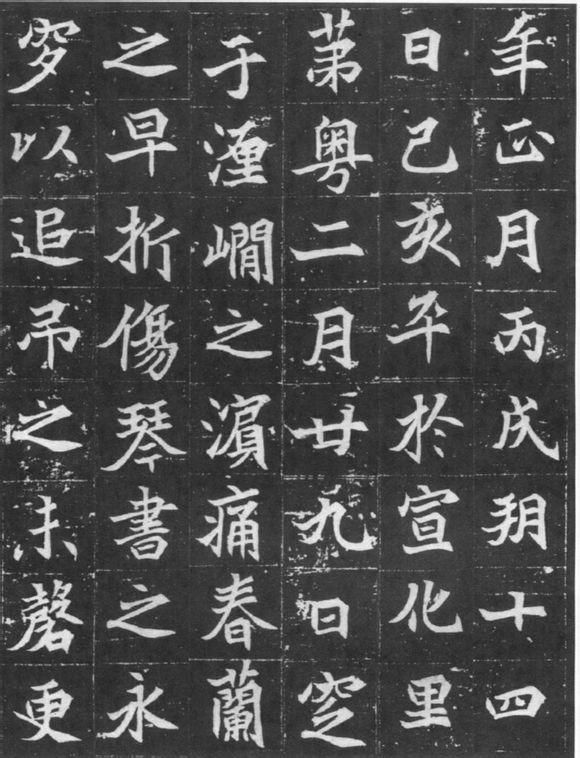 年正月丙戌玥十四
日己亥卒於宣化里
苐粤二月廿九日窆
于湹㵎之濵痛春蘭
之早折傷琴書之永
穸以追吊之未罄更